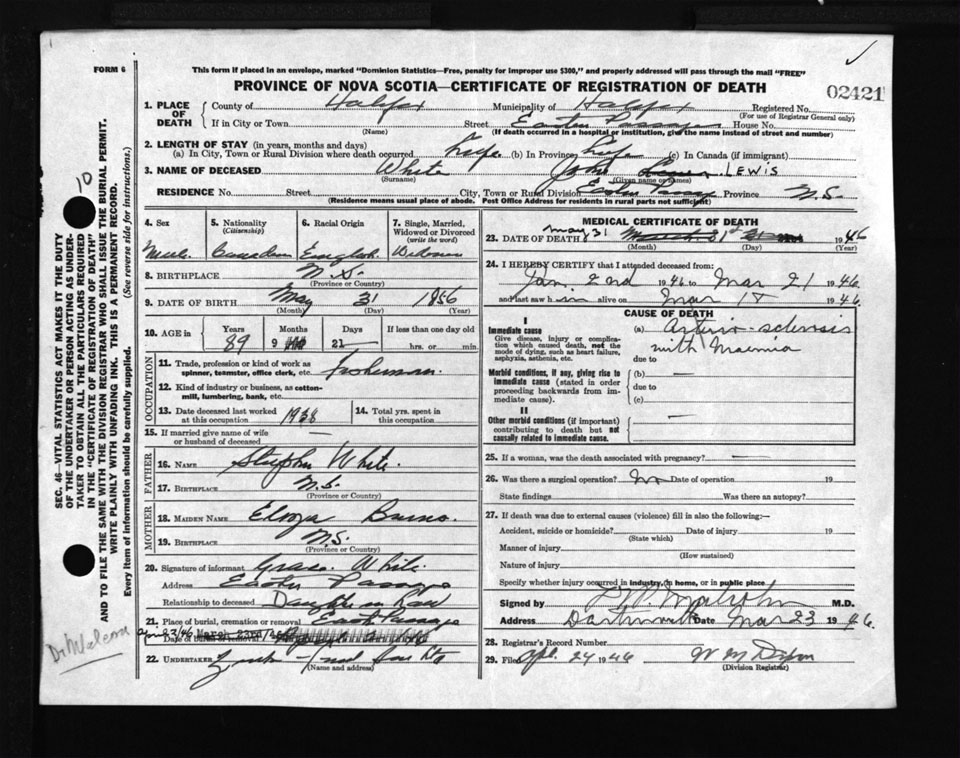 FORM 6
This form if placed in an envelope, marked "Dominion Statistics—Free, penalty for improper use $300," and properly addressed will pass through the mail "FREE"
PROVINCE OF NOVA SCOTIA—CERTIFICATE OF REGISTRATION OF DEATH
02421
1. PLACE OF DEATH
County of Halifax Municipality of Halifax Registered No.
(For use of Registrar General only)
If in City or Town Street Eastern Passage House No.
(Name) (If death occurred in a hospital or institution, give the name instead of street and number)
2. LENGTH OF STAY (in years, months and days)
(a) In City, Town or Rural Division where death occurred Life (b) In Province Life (c) In Canada (if immigrant)
3. NAME OF DECEASED White John LEWIS
(Surname) (Given name or names)
RESIDENCE No. Street City, Town or Rural Division Eastern Passage Province N.S.
(Residence means usual place of abode. Post Office Address for residents in rural parts not sufficient)
4. Sex Male
5. Nationality (Citizenship) Canadian
6. Racial Origin English
7. Single, Married, Widowed or Divorced (write the word) Widower
8. BIRTHPLACE N.S.
(Province or Country)
9. DATE OF BIRTH May 31 1856
(Month) (Day) (Year)
10. AGE in Years 89 Months 9 Days 21 If less than one day old
hrs. or min.
OCCUPATION
11. Trade, profession or kind of work as spinner, teamster, office clerk, etc. Fisherman.
12. Kind of industry or business, as cotton-mill, lumbering, bank, etc.
13. Date deceased last worked at this occupation 1938
14. Total yrs. spent in this occupation
15. If married give name of wife or husband of deceased
FATHER
16. NAME Stephen White.
17. BIRTHPLACE N.S.
(Province or Country)
MOTHER
18. MAIDEN NAME Eloza
19. BIRTHPLACE N.S.
(Province or Country)
20. Signature of informant Grace White.
Address Eastern Passage
Relationship to deceased Daughter in Law
21. Place of burial, cremation or removal East Passage
Date of burial or removal 23/46 March 23rd
22. UNDERTAKER
(Name and address)
MEDICAL CERTIFICATE OF DEATH
23. DATE OF DEATH May 31 March 21st 1946
(Month) (Day)
24. I HEREBY CERTIFY that I attended deceased from:
Jan. 2nd 1946 to Mar 21 1946
and last saw him alive on Mar 18 1946.
CAUSE OF DEATH
I
Immediate cause
Give disease, injury or complication which caused death, not the mode of dying, such as heart failure, asphyxia, asthenia, etc.
(a) Arterio-sclerosis
with
due to
Morbid conditions, if any, giving rise to immediate cause (stated in order proceeding backwards from immediate cause).
(b) —
due to
(c)
II
Other morbid conditions (if important) contributing to death but not causally related to immediate cause.
25. If a woman, was the death associated with pregnancy? —
26. Was there a surgical operation? No Date of operation 19
State findings Was there an autopsy?
27. If death was due to external causes (violence) fill in also the following:—
Accident, suicide or homicide? Date of injury 19
(State which)
Manner of injury
(How sustained)
Nature of injury
Specify whether injury occurred in industry, in home, or in public place
Signed by M.D.
Address Dartmouth Date Mar 23 1946.
28. Registrar's Record Number
29. Filed Apl. 24 1946
(Division Registrar)
SEC. 46—VITAL STATISTICS ACT MAKES IT THE DUTY
OF THE UNDERTAKER OR PERSON ACTING AS UNDER-
TAKER TO OBTAIN ALL THE PARTICULARS REQUIRED
IN THE "CERTIFICATE OF REGISTRATION OF DEATH"
AND TO FILE THE SAME WITH THE DIVISION REGISTRAR WHO SHALL ISSUE THE BURIAL PERMIT.
WRITE PLAINLY WITH UNFADING INK. THIS IS A PERMANENT RECORD.
Every item of information should be carefully supplied. (See reverse side for instructions.)
10